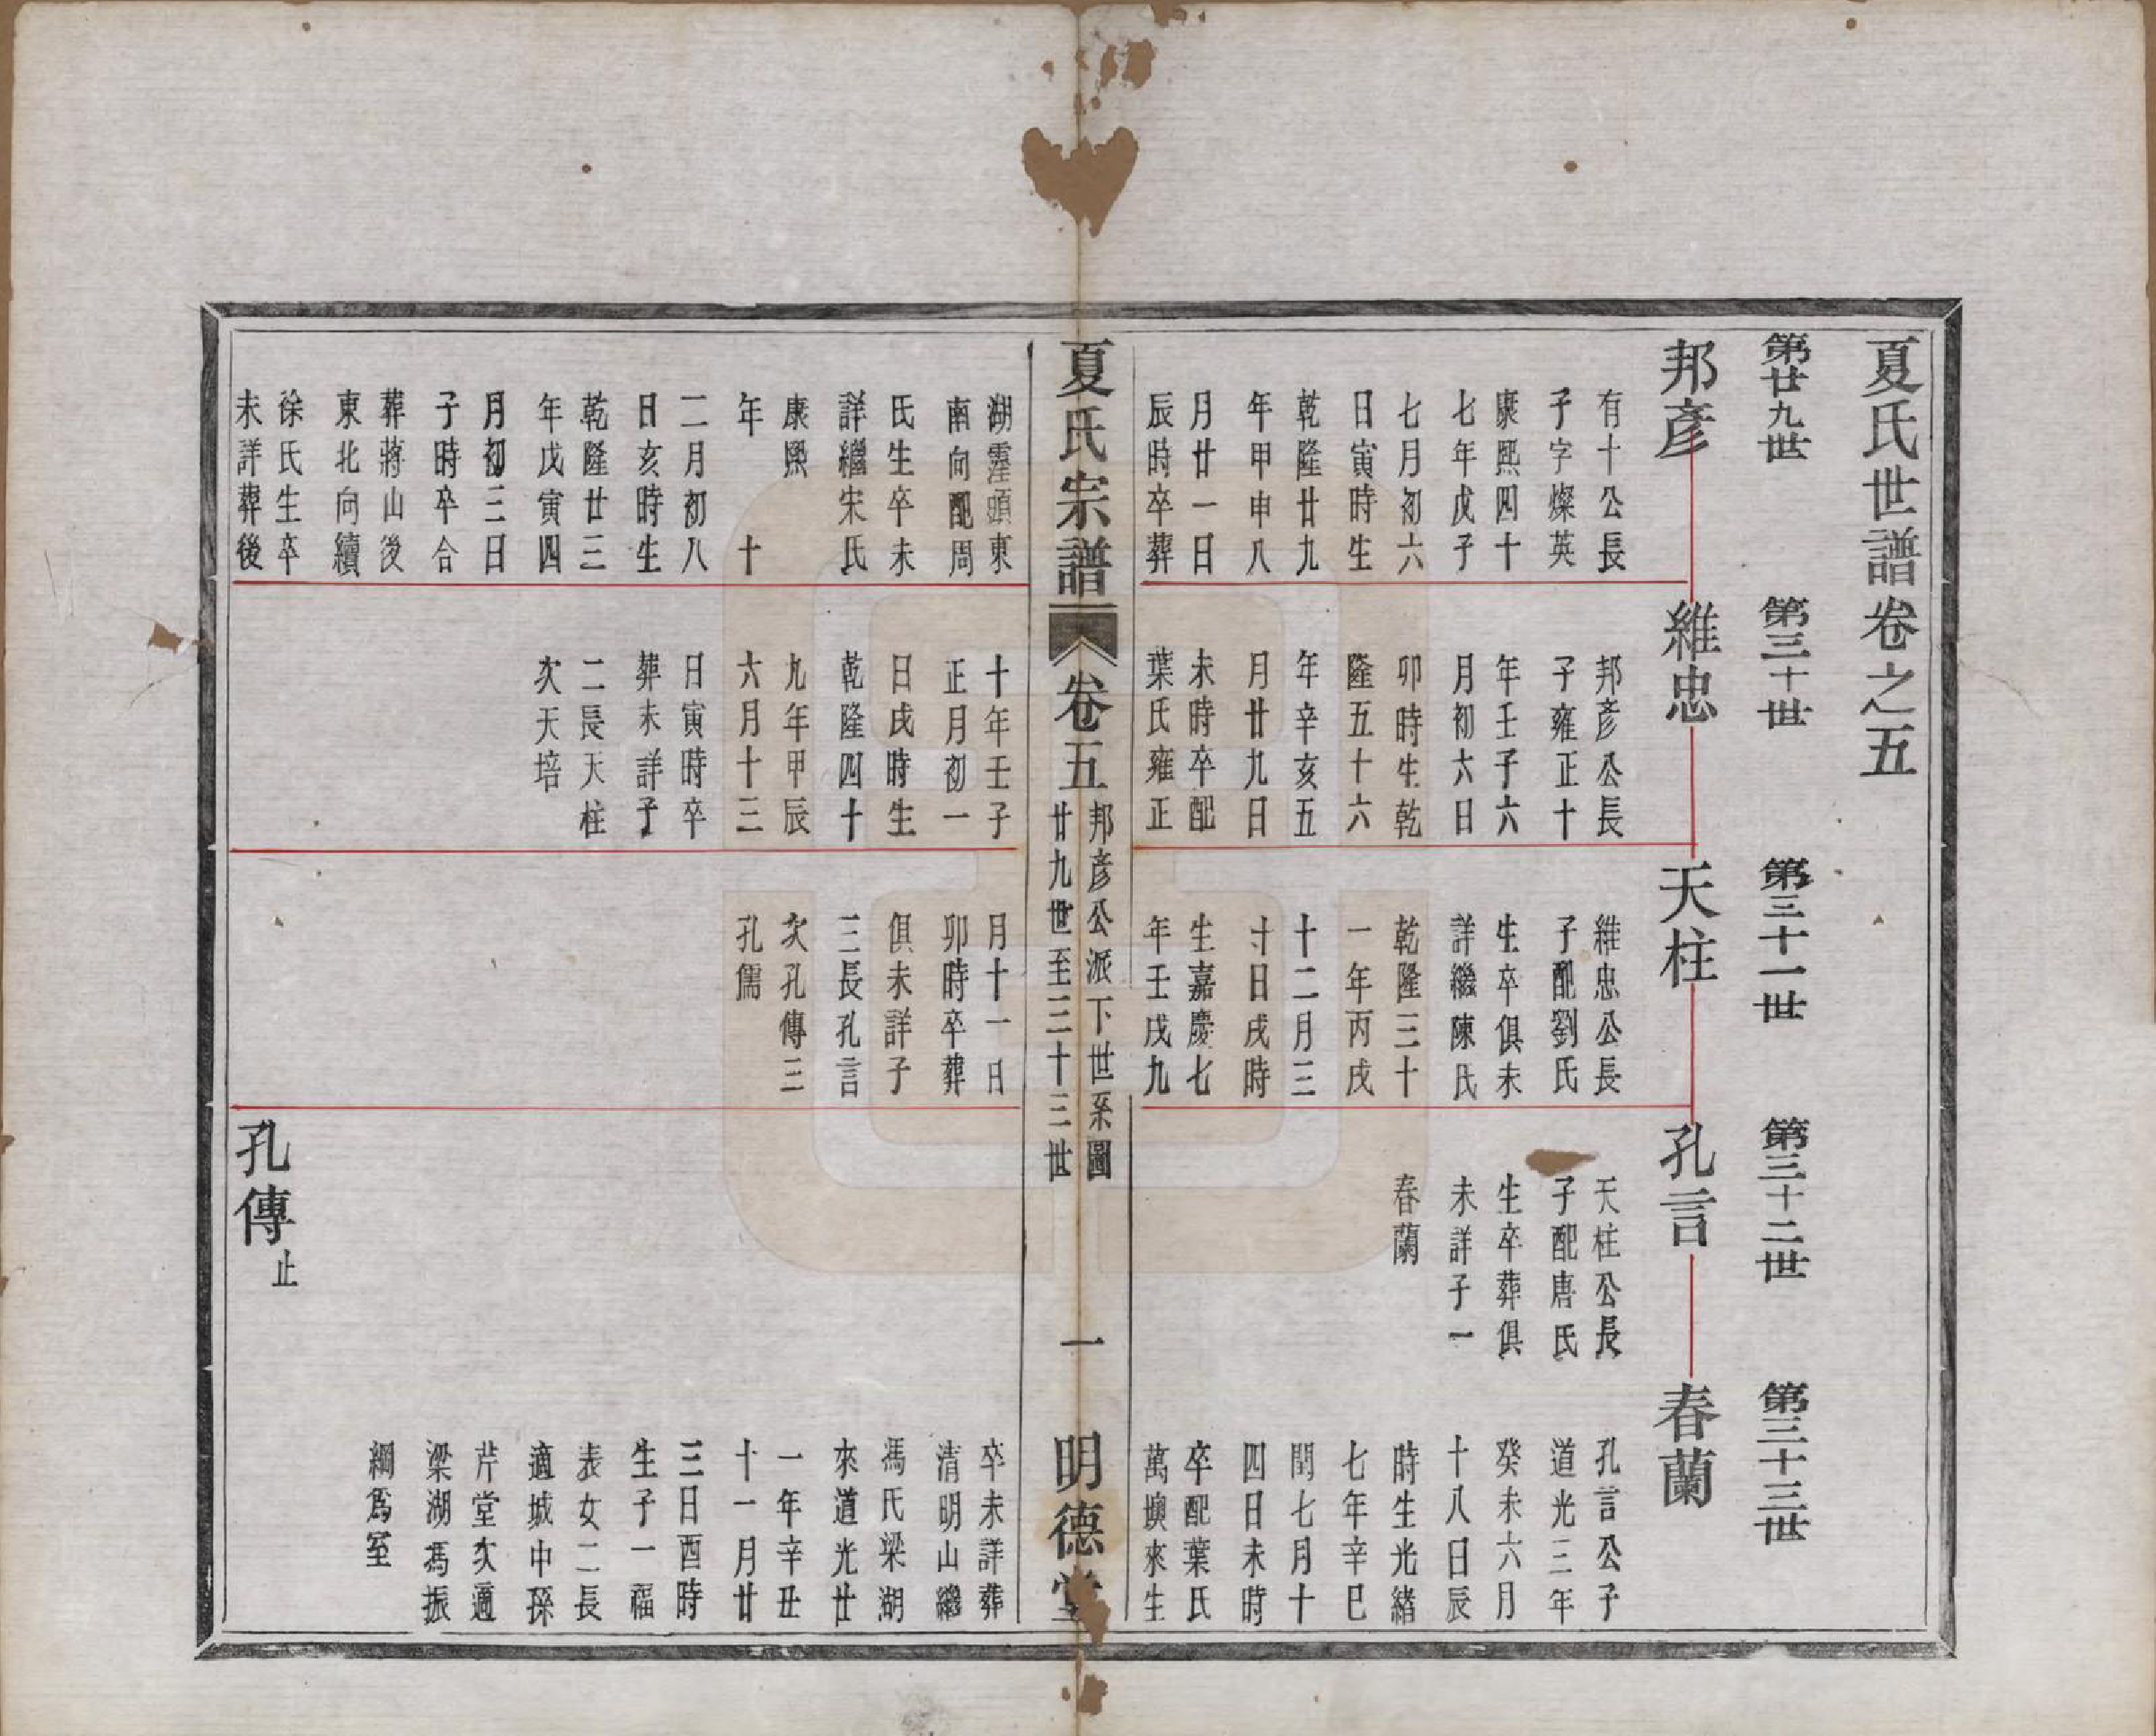 夏氏世譜卷之五
第廿九世
第三十世
第三十一世
第三十二世
第三十三世
邦彥
有十公長
子字燦英
康熙四十
七年戊子
七月初六
日寅時生
乾隆廿九
年甲申八
月廿一日
辰時卒葬
湖霪頭東
南向配周
氏生卒未
詳繼宋氏
康熙
年　　十
二月初八
日亥時生
乾隆廿三
年戊寅四
月初三日
子時卒合
葬蔣山後
東北向續
徐氏生卒
未詳葬後
維忠
邦彥公長
子雍正十
年壬子六
月初六日
卯時生乾
隆五十六
年辛亥五
月廿九日
未時卒配
葉氏雍正
十年壬子
正月初一
日戌時生
乾隆四十
九年甲辰
六月十三
日寅時卒
葬未詳子
二長天柱
次天培
天柱
維忠公長
子配劉氏
生卒俱未
詳繼陳氏
乾隆三十
一年丙戌
十二月三
十日戌時
生嘉慶七
年壬戌九
月十一日
卯時卒葬
俱未詳子
三長孔言
次孔傳三
孔儒
孔言
天柱公長
子配唐氏
生卒葬俱
未詳子一
春蘭
孔傳 止
春蘭
孔言公子
道光三年
癸未六月
十八日辰
時生光緒
七年辛巳
閏七月十
四日未時
卒配葉氏
萬塽來生
卒未詳葬
清明山繼
馮氏梁湖
來道光廿
一年辛丑
十一月廿
三日酉時
生子一福
表女二長
適城中孫
芹堂次適
梁湖馮振
綱爲室
夏氏宗譜
卷五
邦彥公派下世系圖
廿九世至三十三世
一
明德堂